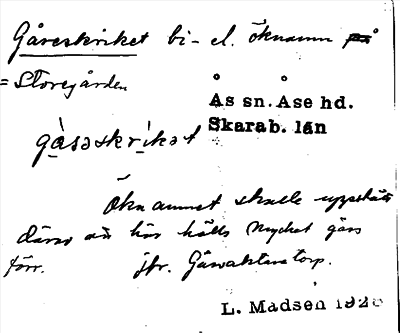 Gåseskriket bi- el. öknamn på
= Storegården
Ås sn. Åse hd.
Skarab. län
gåsəskrikət
Öknamnet skulle uppstått
därav att här hölls mycket gäss
förr. jfr.
L. Madsen 1926